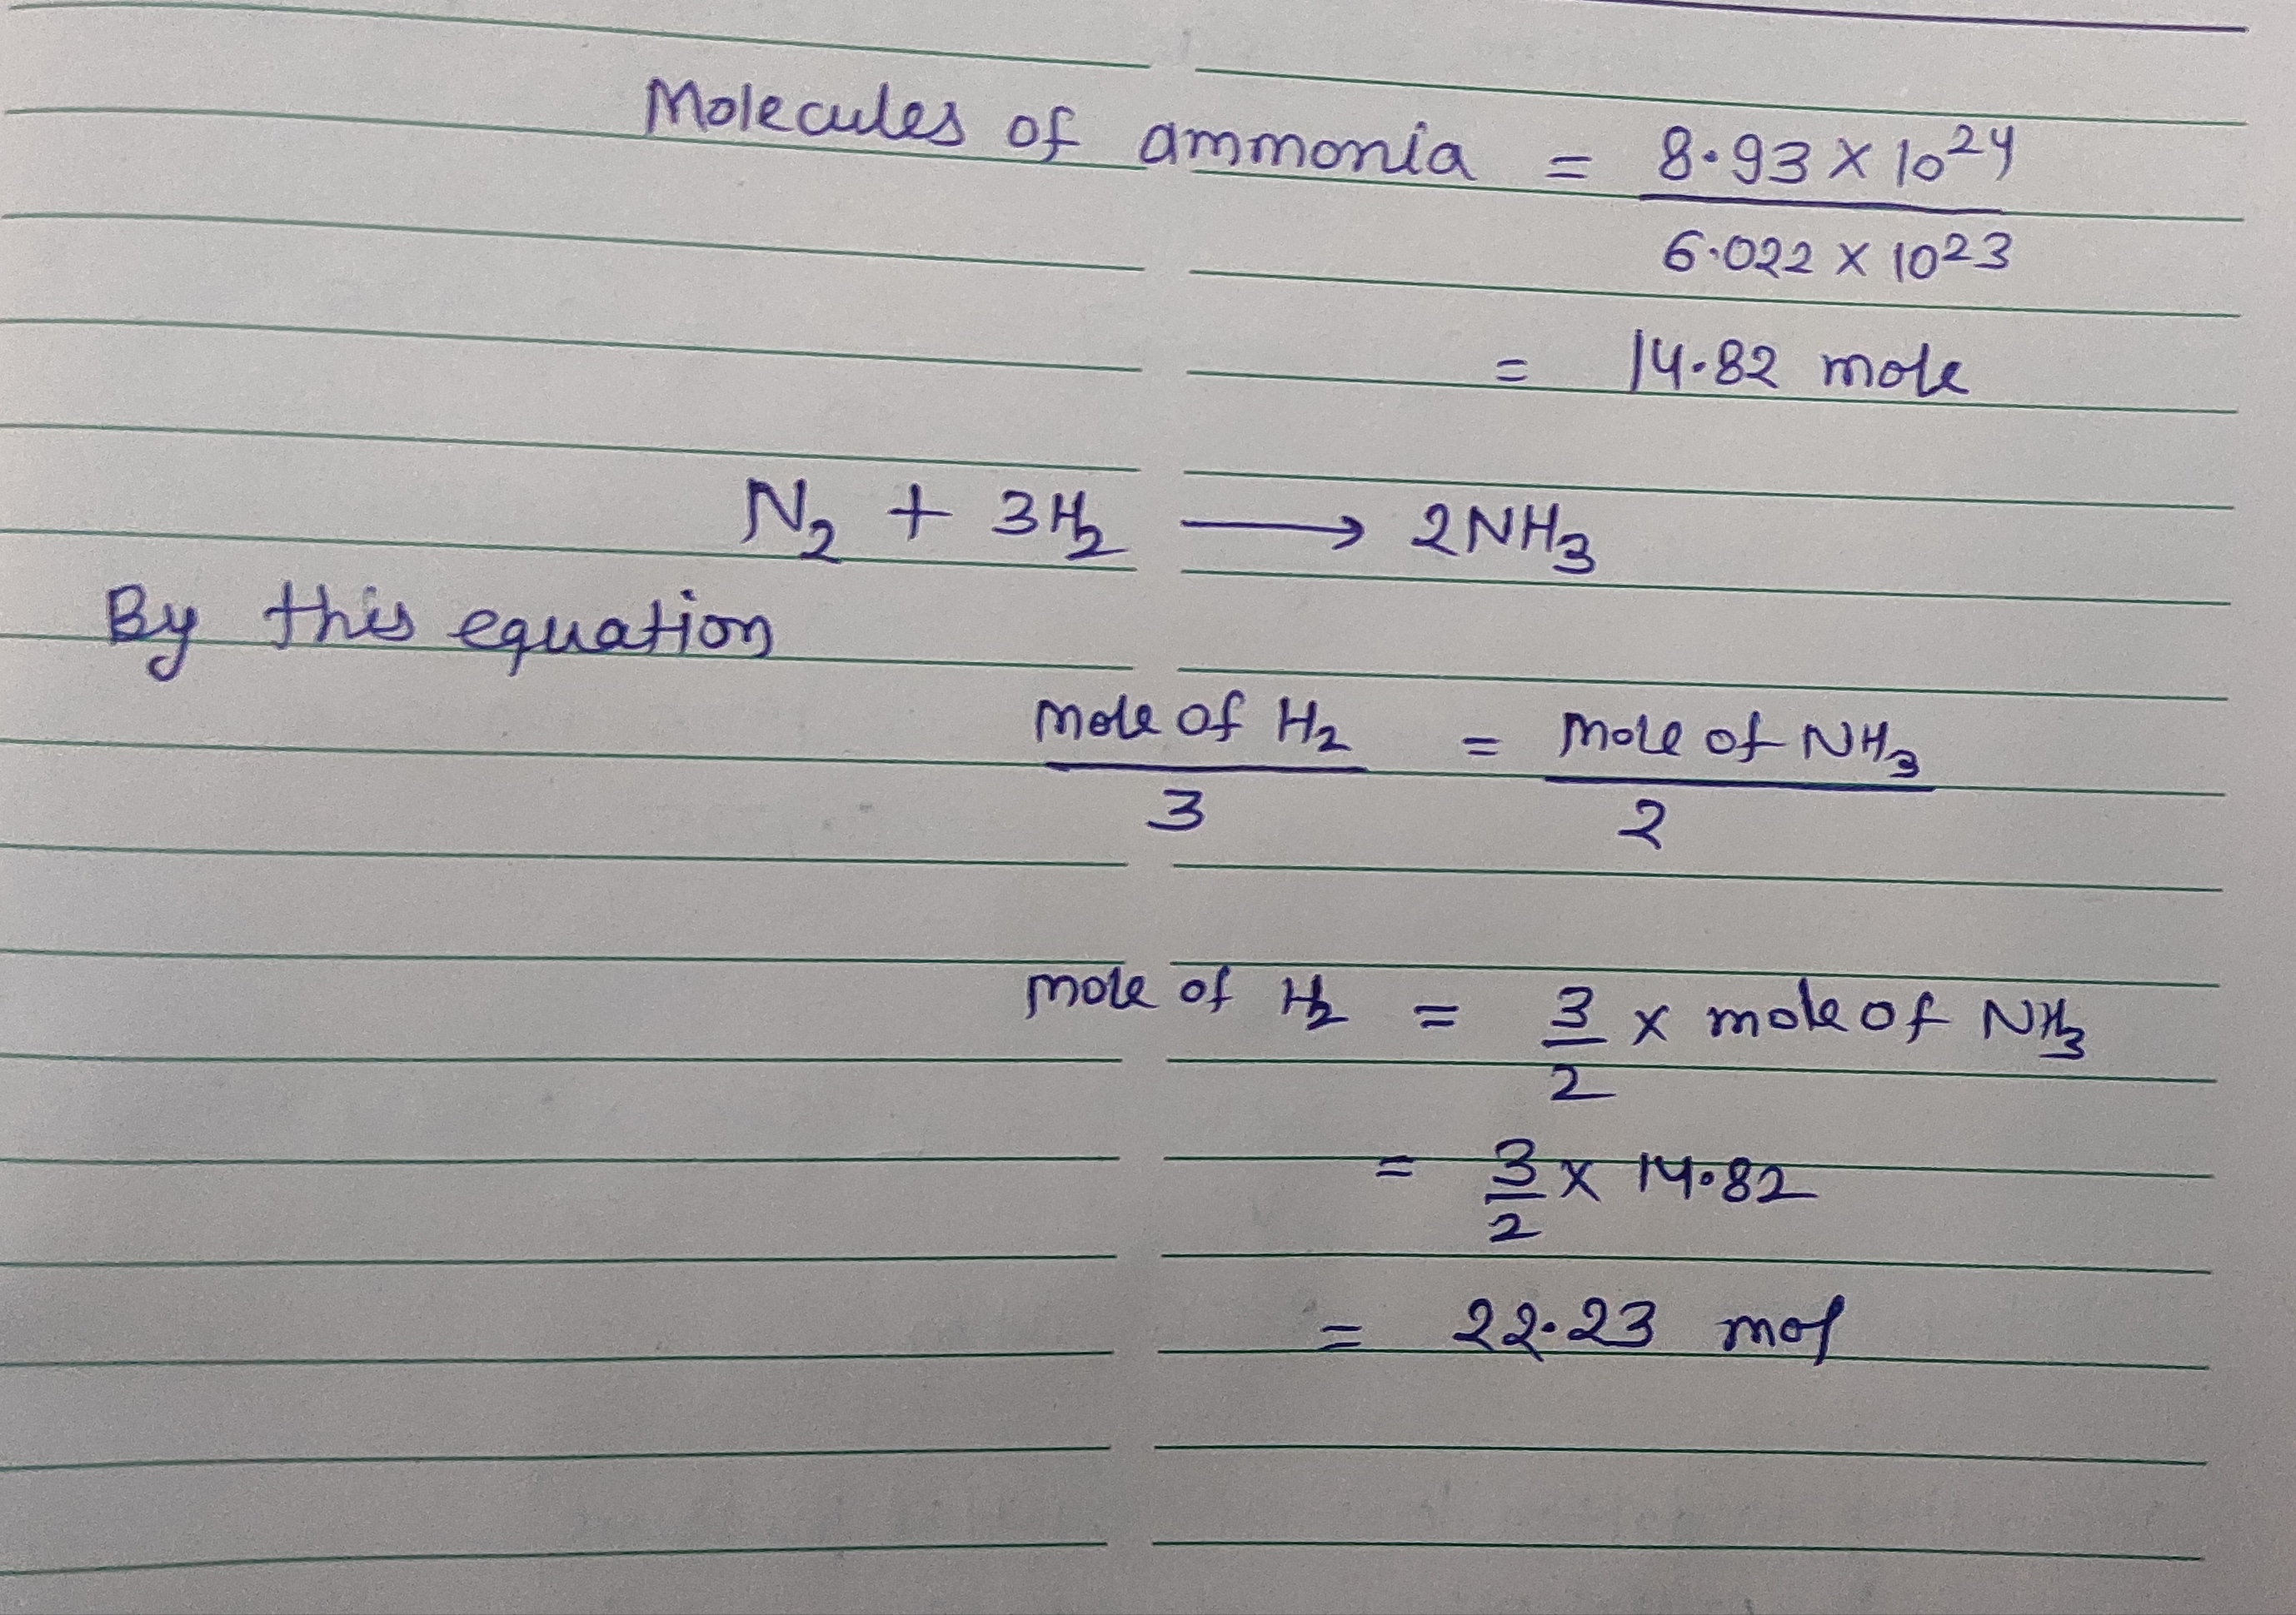 Molecules of ammonia = 8.93 × 10²⁴
6.022 × 10²³
= 14.82 mole
N₂ + 3H₂ ⟶ 2NH₃
By this equation
mole of H₂ = mole of NH₃
3 2
mole of H₂ = 3/2 × mole of NH₃
= 3/2 × 14.82
= 22.23 mol